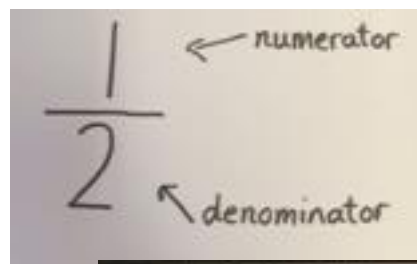 1
numerator
2
denominator